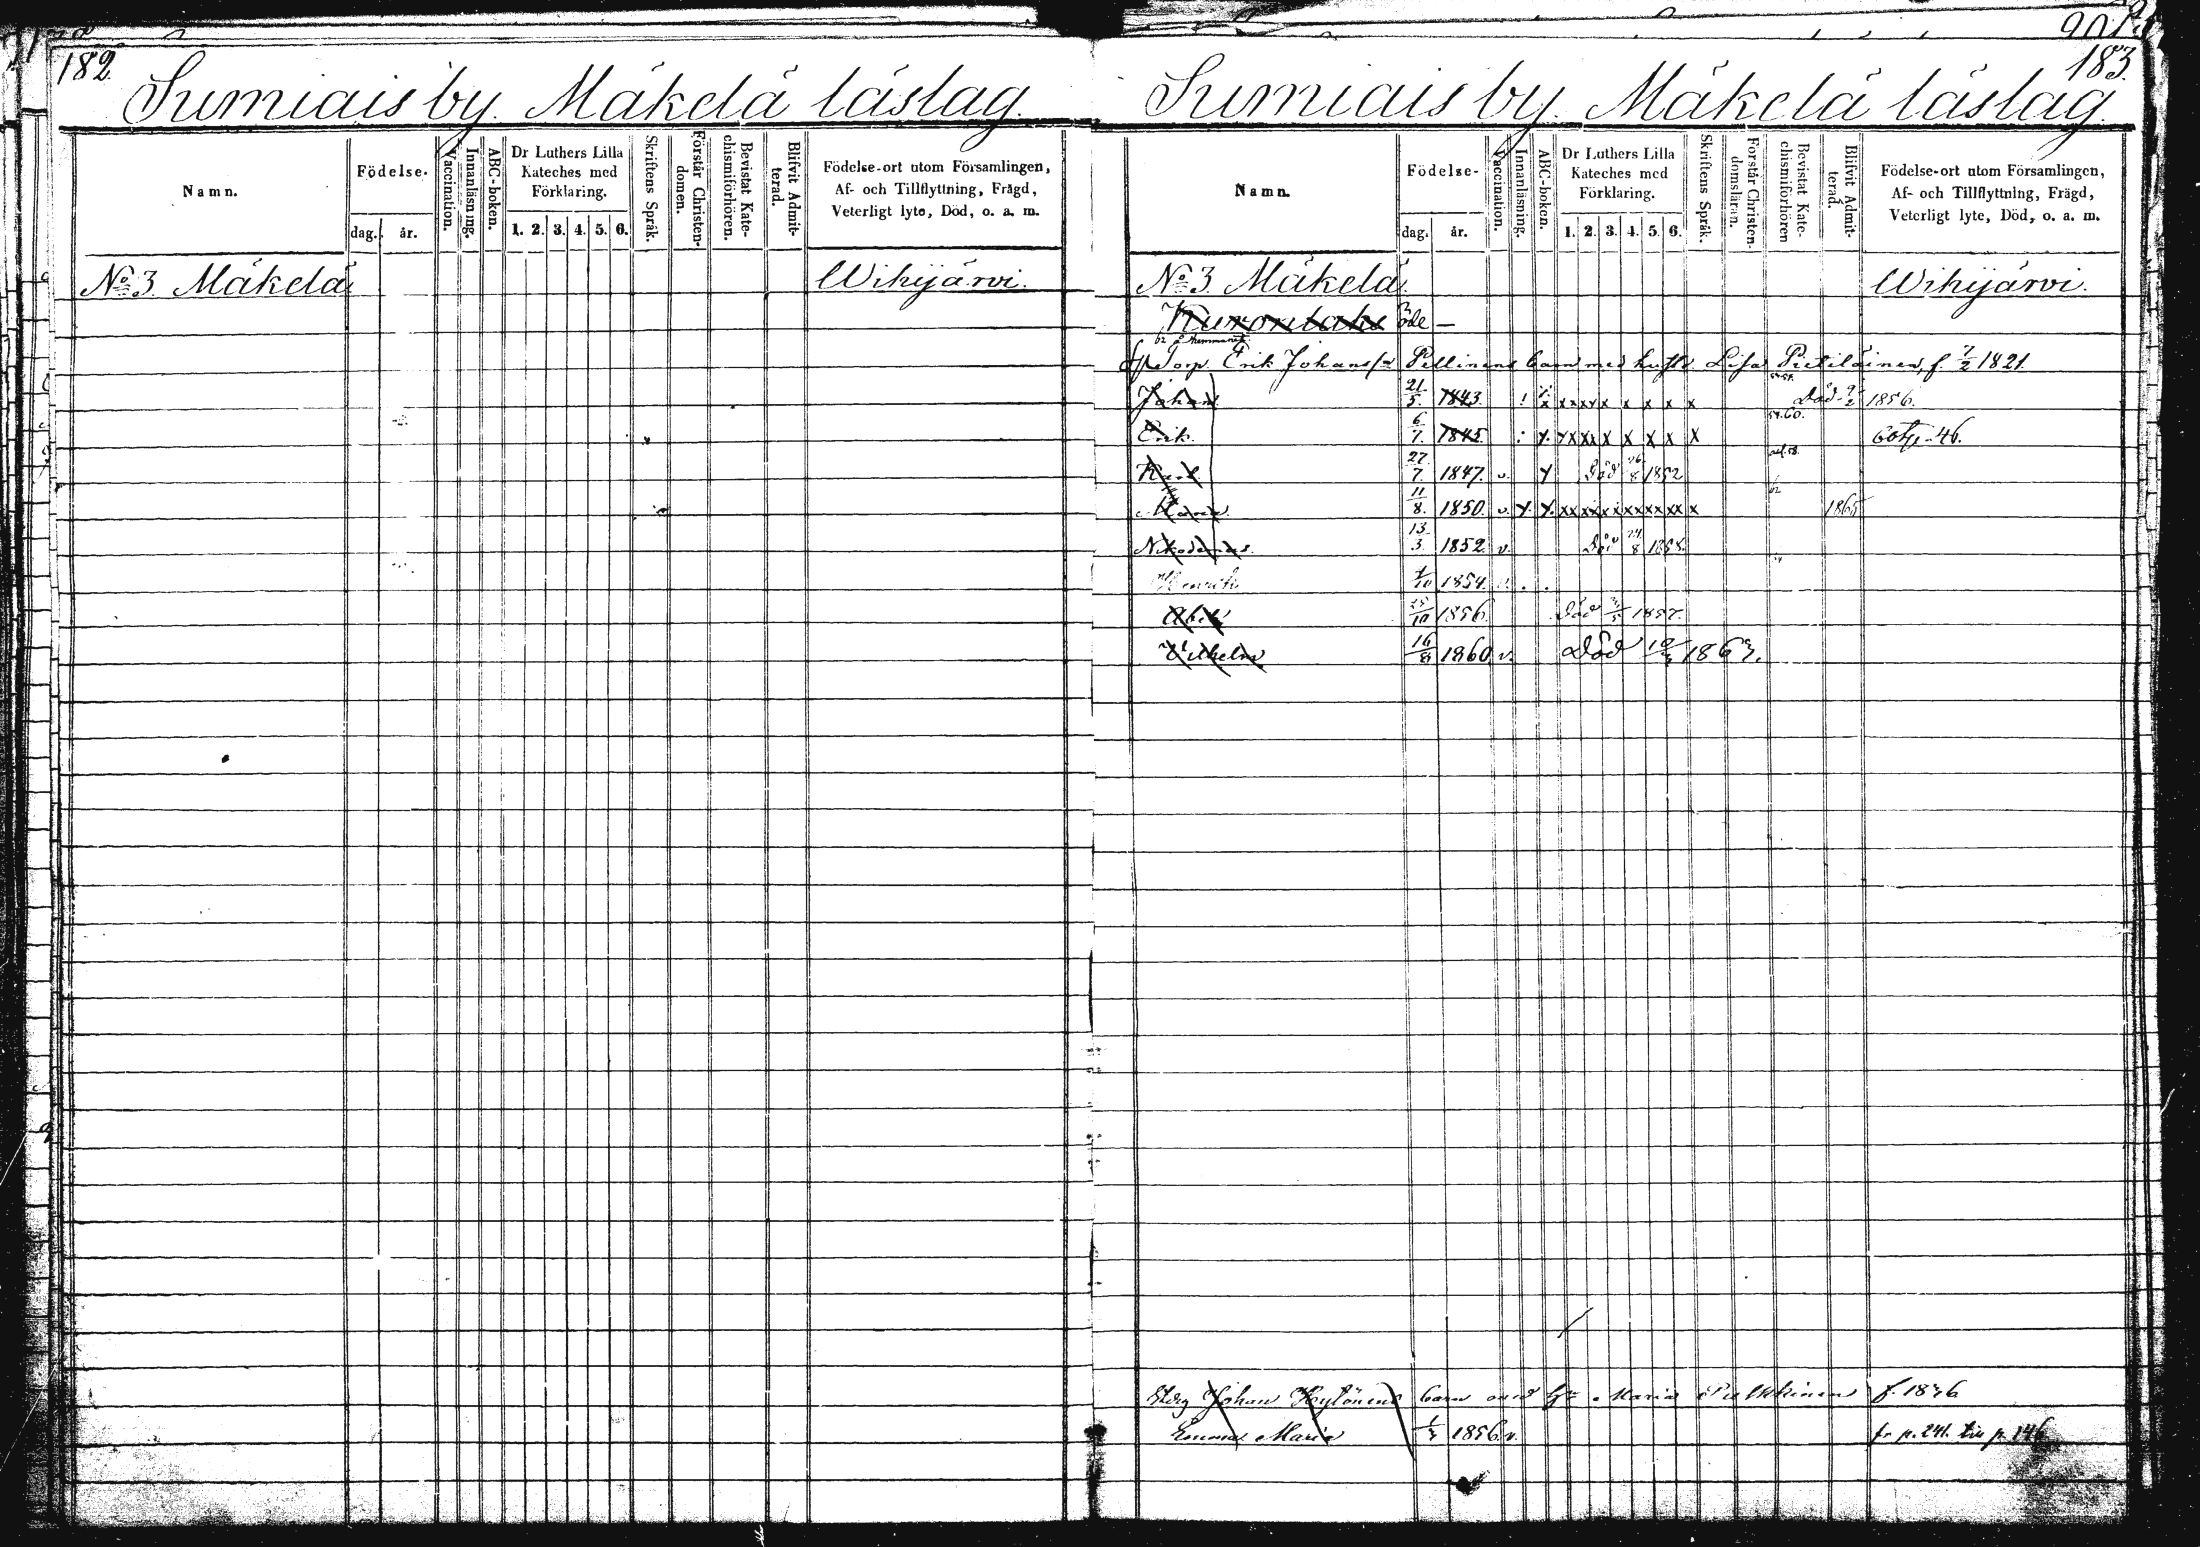 182
Sumiais by. Mäkelä läslag.
Namn.
Födelse.
dag. år.
Vaccination.
Innanläsning.
ABC-boken.
Dr Luthers Lilla
Kateches med
Förklaring.
1. 2. 3. 4. 5. 6.
Skriftens Språk.
Förstår Christen-
domen.
Bevistat Kate-
chismiförhören.
Blifvit Admit-
terad.
Födelse-ort utom Församlingen,
Af- och Tillflyttning, Frägd,
Veterligt lyte, Död, o. a. m.
No 3. Mäkelä Wihijärvi.
183.
Sumiais by. Mäkelä läslag.
Namn.
Födelse-
dag. år.
Vaccination.
Innanläsning.
ABC-boken.
Dr Luthers Lilla
Kateches med
Förklaring.
1. 2. 3. 4. 5. 6.
Skriftens Språk.
Förstår Christen-
domsläran.
Bevistat Kate-
chismiförhören
Blifvit Admit-
terad.
Födelse-ort utom Församlingen,
Af- och Tillflyttning, Frägd,
Veterligt lyte, Död, o. a. m.
No 3 Mäkelä. Wihijärvi.
öde —
Torp. Erik Johans Pellinens barn med hust. Lisa Pietiläinen, f. 7/2 1821.
Johan 21/5. 1843. x x x x x x x x x x Död 9/2 1856.
Erik. 6/7. 1845. x x x x x x x x x 54.60. 46.
Karl 27/7. 1847. v. Död 26/8 1852
Maria 11/8. 1850. v. x x x x x x x x x x x x 62 1865
Nikodemus. 13/3 1852. v. Död 24/8 1858.
Henrik 1/10 1854. v.
Abel 25/10 1856. Död 1857.
Wilhelm 16/8 1860 v. Död 1863.
Johan Hytönens barn med Maria Pulkkinen f. 1826
Emma Maria 1856. v. fr p. 241. till p. 146